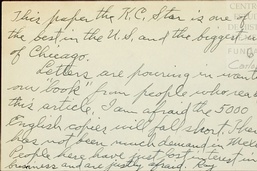 This paper the K.C. Star is one of
the best in the U.S. and the biggest w
of Chicago.
Letters are pouring in want
our "book" from people who rea
this article. I am afraid the 5000
English copies will fall short. Than
has not been much demand in the
People here have just lost interest in
business and are justly afraid. Roy